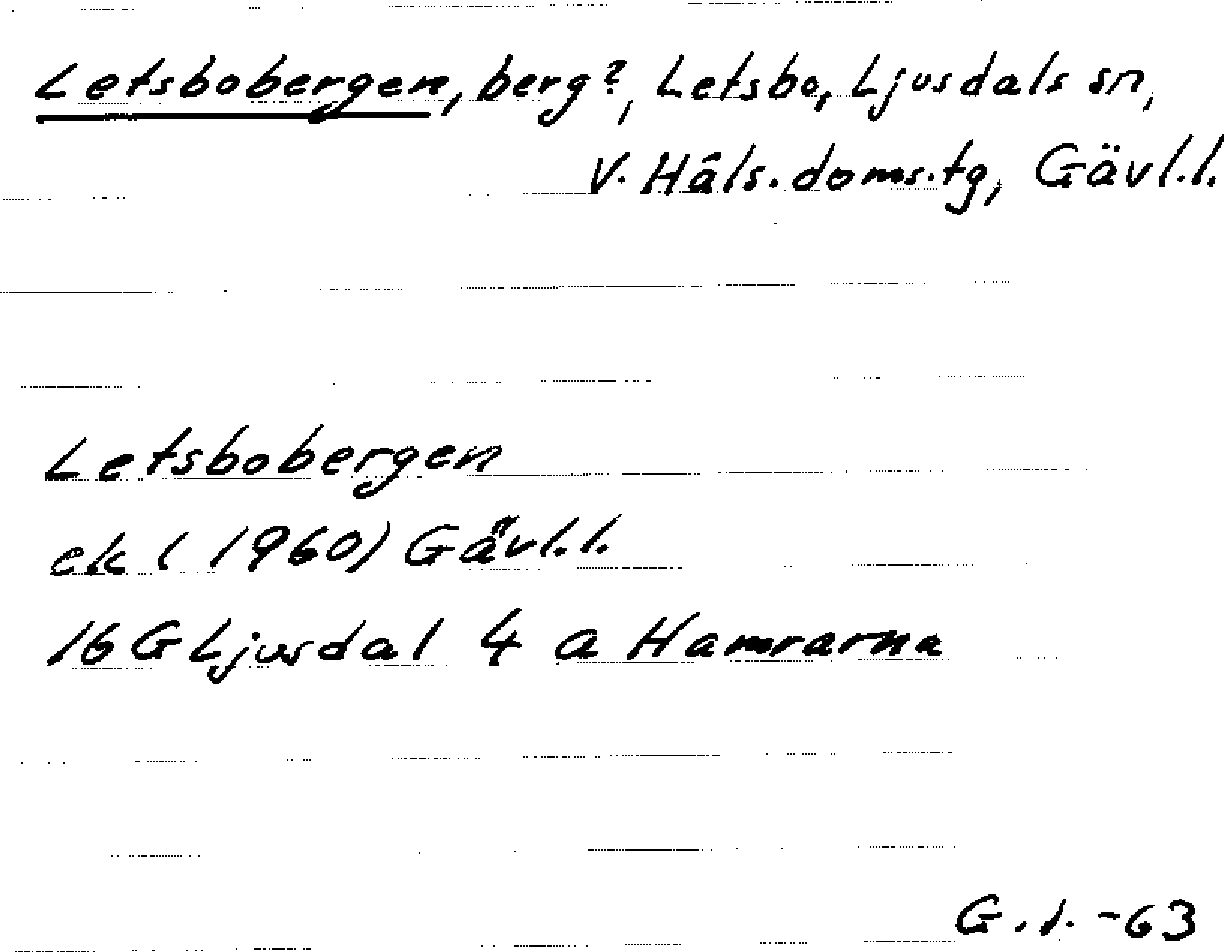 Letsbobergen, berg?, Letsbo, Ljusdals sn,
V. Häls. doms.tg, Gävl.l.
Letsbobergen
ek (1960) Gävl.l.
16 G Ljusdal 4 a Hamrarna
G. J. -63